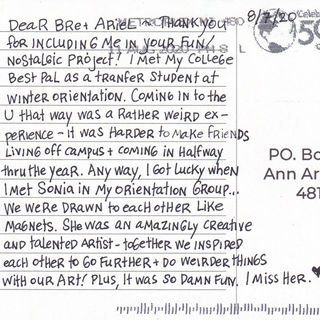 8/7/20
Dear Bre + Ariel - Thank you
METRO 480
for including me in your fun/
Nostalgic Project! I met my college
11 AUG 2020 PM 8 L
Best Pal as a tranfer student at
Winter Orientation. Coming in to the
U that way was a rather weird ex-
perience - it was harder to make friends
living off campus + coming in halfway
thru the year. Any way, I got lucky when
I met Sonia in my orientation group...
We were drawn to each other like
magnets. She was an amazingly creative
and talented artist - together we inspired
each other to go further + do weirder things
with our art! Plus, it was so damn fun. I miss her. ♥
Celeb
50
PO. Bo
Ann Ar
481